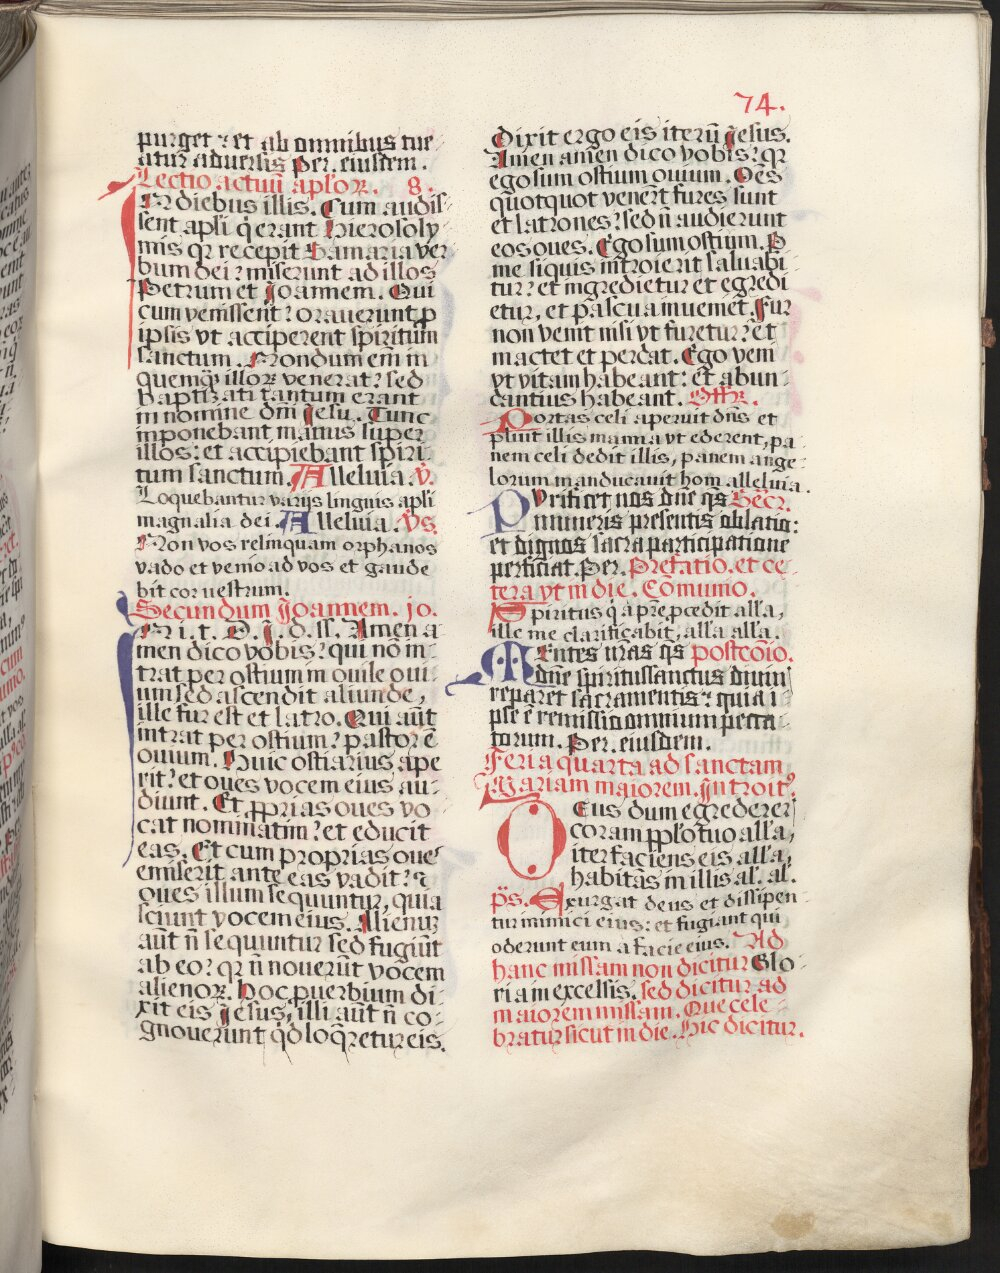 74.
purget: et ab omnibus tue
atur aduersis Per. eiusdem.
Lectio actuū apl'oꝝ. 8.
IN diebus illis. Cum audis-
sent apl'i q̇ erant Hierosoly
mis qꝛ recepit Samaria ver
bum dei: miserunt ad illos
Petrum et Joannem. Qui
cum venissent: orauerunt ꝓ
ipsis vt acciperent spiritum
sanctum. Nondum em̄ in
quemq̄ȝ illoꝝ venerat: sed
baptizati tantum erant
in nomine dnī Jesu. Tunc
imponebant manus super
illos: et accipiebant spiri
tum sanctum. Alleluia. V̄.
Loquebantur varijs linguis apl'i
magnalia dei. Alleluia. Vs.
Non vos relinquam orphanos
vado et venio ad vos et gaude
bit cor uestrum.
Secundum Joannem. jo.
IN i. t. D. J. d. ss. Amen a
men dico vobis: qui no in
trat per ostium in ouile oui
um sed ascendit aliunde,
ille fur est et latro. Qui aūt
intrat per ostium: pastor ē
ouium. Huic ostiarius ape
rit: et oues vocem eius au-
diunt. Et ꝓprias oues vo
cat nominatim: et educit
eas. Et cum proprias oues
emiserit ante eas vadit: ⁊
oues illum sequuntur, quia
sciunt vocem eius. Alienuȝ
aūt n̄ sequuntur sed fugiūt
ab eo: qꝛ n̄ nouerūt vocem
alienoꝝ. Hoc ꝓuerbium di-
xit eis Jesus, illi aūt n̄ co-
gnouerunt q̇d loq̄retur eis.
Dixit ergo eis iterū Jesus.
Amen amen dico vobis: qꝛ
ego sum ostium ouium. Oēs
quotquot venerūt fures sunt
et latrones: sed n̄ audierunt
eos oues. Ego sum ostium. P
me siquis introierit saluabi
tur: et ingredietur et egredi
etur, et pascua inueniet. Fur
non venit nisi vt furetur: et
mactet et perdat. Ego veni
vt vitam habeant: et abun
dantius habeant. Offꝝ.
Portas celi aperuit dn̄s et
pluit illis manna vt ederent, pa
nem celi dedit illis, panem ange-
lorum manducauit hom alleluia.
PUrificet nos dn̄e q̄s Secr.
muneris presentis oblatio:
et dignos sacra participatione
perficiat. Per. Prefatio. et ce
tera vt in die. Cōmunio.
Spiritus q̇ a pr̄e ꝓcedit all'a,
ille me clarificabit, all'a all'a.
MEntes nr̄as q̄s postcōio.
dn̄e spiritussanctus diuin
reparet sacramentis: quia i
pse ē remissio omnium pecca
torum. Per. eiusdem.
Feria quarta ad sanctam
Mariam maiorem. Introit.
DEus dum egrederer
coram ppl'o tuo all'a,
iter faciens eis all'a,
habitās in illis al. al.
p̄s. Exurgat deus et dissipen-
tur inimici eius: et fugiant qui
oderunt eum a facie eius. Ad
hanc missam non dicitur Glo-
ria in excelsis. sed dicitur ad
maiorem missam. Que cele-
bratur sicut in die. Hic dicitur.